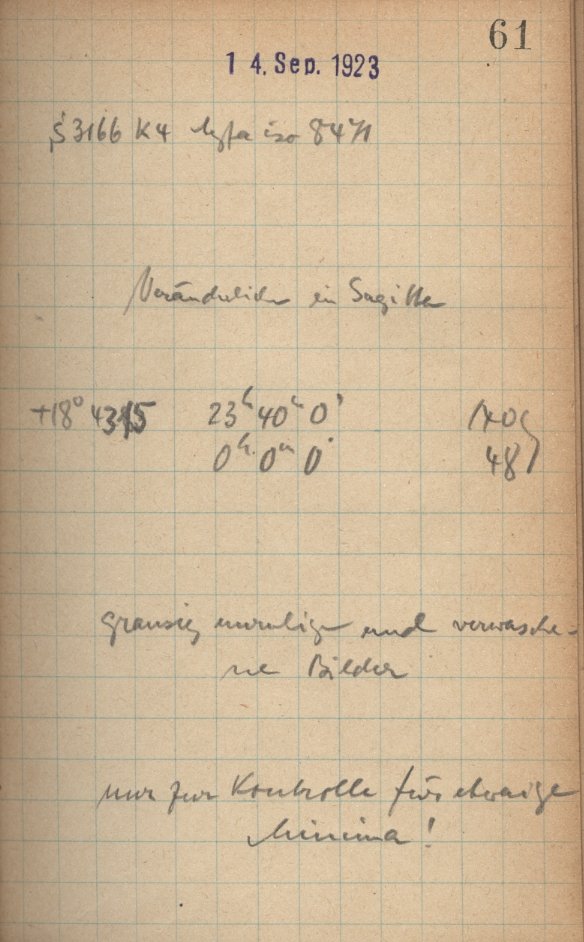 61
14. Sep. 1923
S 3166 K4 Agfa iso 8471
Veränderliche in Sagitta
+18° 4315 23h 40m 0s
0h 0m 0s 48
grausig unruhige und verwasche-
ne Bilder
nur zur Kontrolle für etwaige
Minima!